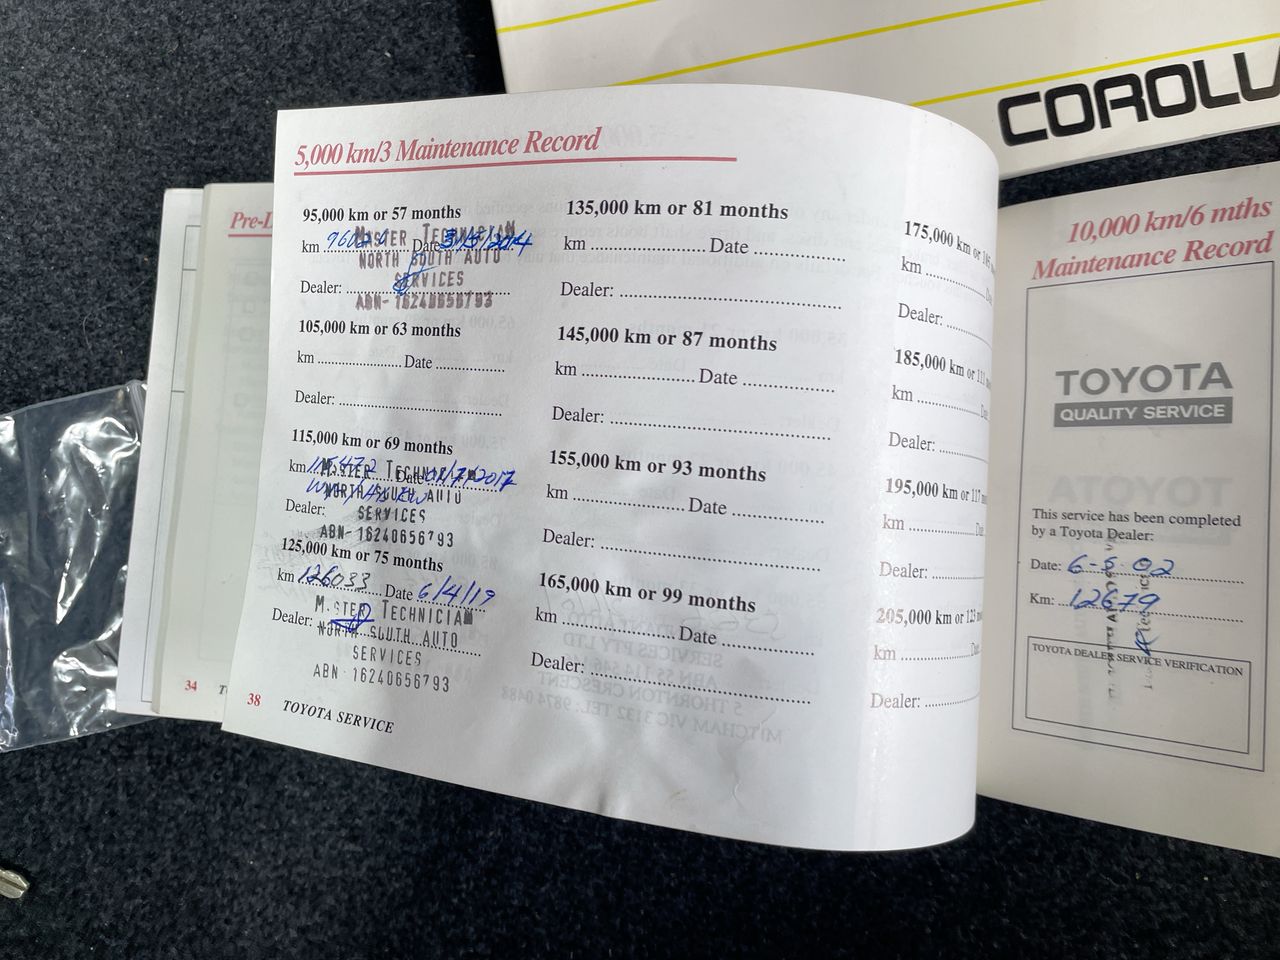 COROLL
5,000 km/3 Maintenance Record
95,000 km or 57 months
km Date 2014
MASTER TECHNICIAN
NORTH SOUTH AUTO
SERVICES
Dealer:
ABN- 16240656793
105,000 km or 63 months
km Date
Dealer:
115,000 km or 69 months
km 115472 Date 7/2017
MASTER TECHNICIAN
NORTH SOUTH AUTO
Dealer:
SERVICES
ABN- 16240656793
125,000 km or 75 months
km 126033 Date 6/4/19
Dealer:
MASTER TECHNICIAN
NORTH SOUTH AUTO
SERVICES
ABN- 16240656793
38 TOYOTA SERVICE
135,000 km or 81 months
km Date
Dealer:
145,000 km or 87 months
km Date
Dealer:
155,000 km or 93 months
km Date
Dealer:
165,000 km or 99 months
km Date
Dealer:
SERVICES PTY LTD
5 THORNTON CRESCENT
MITCHAM VIC 3132 TEL: 9874 0488
175,000 km or
km Da
Dealer:
185,000 km or 111
km Da
Dealer:
195,000 km or 117
km Da
Dealer:
205,000 km or 123
km Da
Dealer:
Pre-D
34
10,000 km/6 mths
Maintenance Record
TOYOTA
QUALITY SERVICE
This service has been completed
by a Toyota Dealer:
Date: 6-5-02
Km: 12679
TOYOTA DEALER SERVICE VERIFICATION